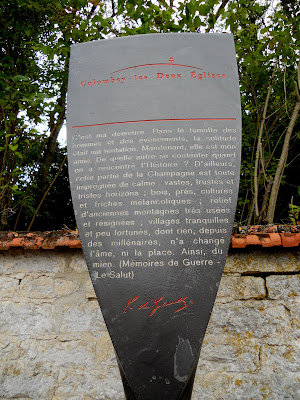 Colombey-les-Deux-Églises
C'est ma demeure. Dans le tumulte des
hommes et des événements, la solitude
était ma tentation. Maintenant, elle est mon
amie. De quelle autre se contenter quand
on a rencontré l'Histoire ? D'ailleurs,
cette partie de la Champagne est toute
imprégnée de calme : vastes, frustes et
tristes horizons ; bois, prés, cultures
et friches mélancoliques ; relief
d'anciennes montagnes très usées
et résignées ; villages tranquilles
et peu fortunés, dont rien, depuis
des millénaires, n'a changé
l'âme, ni la place. Ainsi, du
mien. (Mémoires de Guerre -
Le Salut)
C. de Gaulle